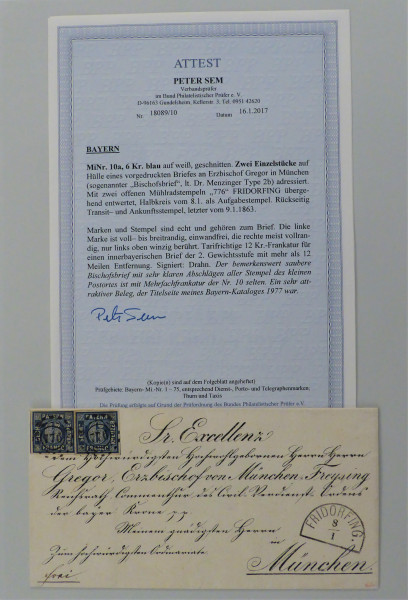 ATTEST
PETER SEM
Verbandsprüfer
im Bund Philatelistischer Prüfer e. V.
D-96163 Gundelsheim, Kellerstr. 3, Tel. 0951 42620
Nr. 18089/10 Datum 16.1.2017
BAYERN
MiNr. 10a, 6 Kr. blau auf weiß, geschnitten. Zwei Einzelstücke auf
Hülle eines vorgedruckten Briefes an Erzbischof Gregor in München
(sogenannter „Bischofsbrief“, lt. Dr. Menzinger Type 2b) adressiert.
Mit zwei offenen Mühlradstempeln „776“ FRIDORFING überge-
hend entwertet, Halbkreis vom 8.1. als Aufgabestempel. Rückseitig
Transit– und Ankunftsstempel, letzter vom 9.1.1863.
Marken und Stempel sind echt und gehören zum Brief. Die linke
Marke ist voll– bis breitrandig, einwandfrei, die rechte meist vollran-
dig, nur links oben winzig berührt. Tarifrichtige 12 Kr.-Frankatur für
einen innerbayerischen Brief der 2. Gewichtsstufe mit mehr als 12
Meilen Entfernung. Signiert: Drahn. Der bemerkenswert saubere
Bischofsbrief mit sehr klaren Abschlägen aller Stempel des kleinen
Postortes ist mit Mehrfachfrankatur der Nr. 10 selten. Ein sehr att-
raktiver Beleg, der Titelseite meines Bayern-Kataloges 1977 war.
Peter Sem
(Kopie(n) sind auf dem Folgeblatt angeheftet)
Prüfgebiete: Bayern- Mi.-Nr. 1 – 75, entsprechend Dienst-, Porto- und Telegraphenmarken;
Thurn und Taxis
Die Prüfung erfolgte auf Grund der Prüfordnung des Bundes Philatelistischer Prüfer e.V.
Sr. Excellenz
dem Hochwürdigsten Hochwohlgebornen Herrn Herrn
Gregor, Erzbischof von München-Freysing
Reichsrath Commenthur des Civil-Verdienst-Ordens
der bayer. Krone p.p.
Meinem gnädigsten Herrn
FRIDORFING.
8
1
Zum hochwürdigsten Ordinariate
in
München.
frei